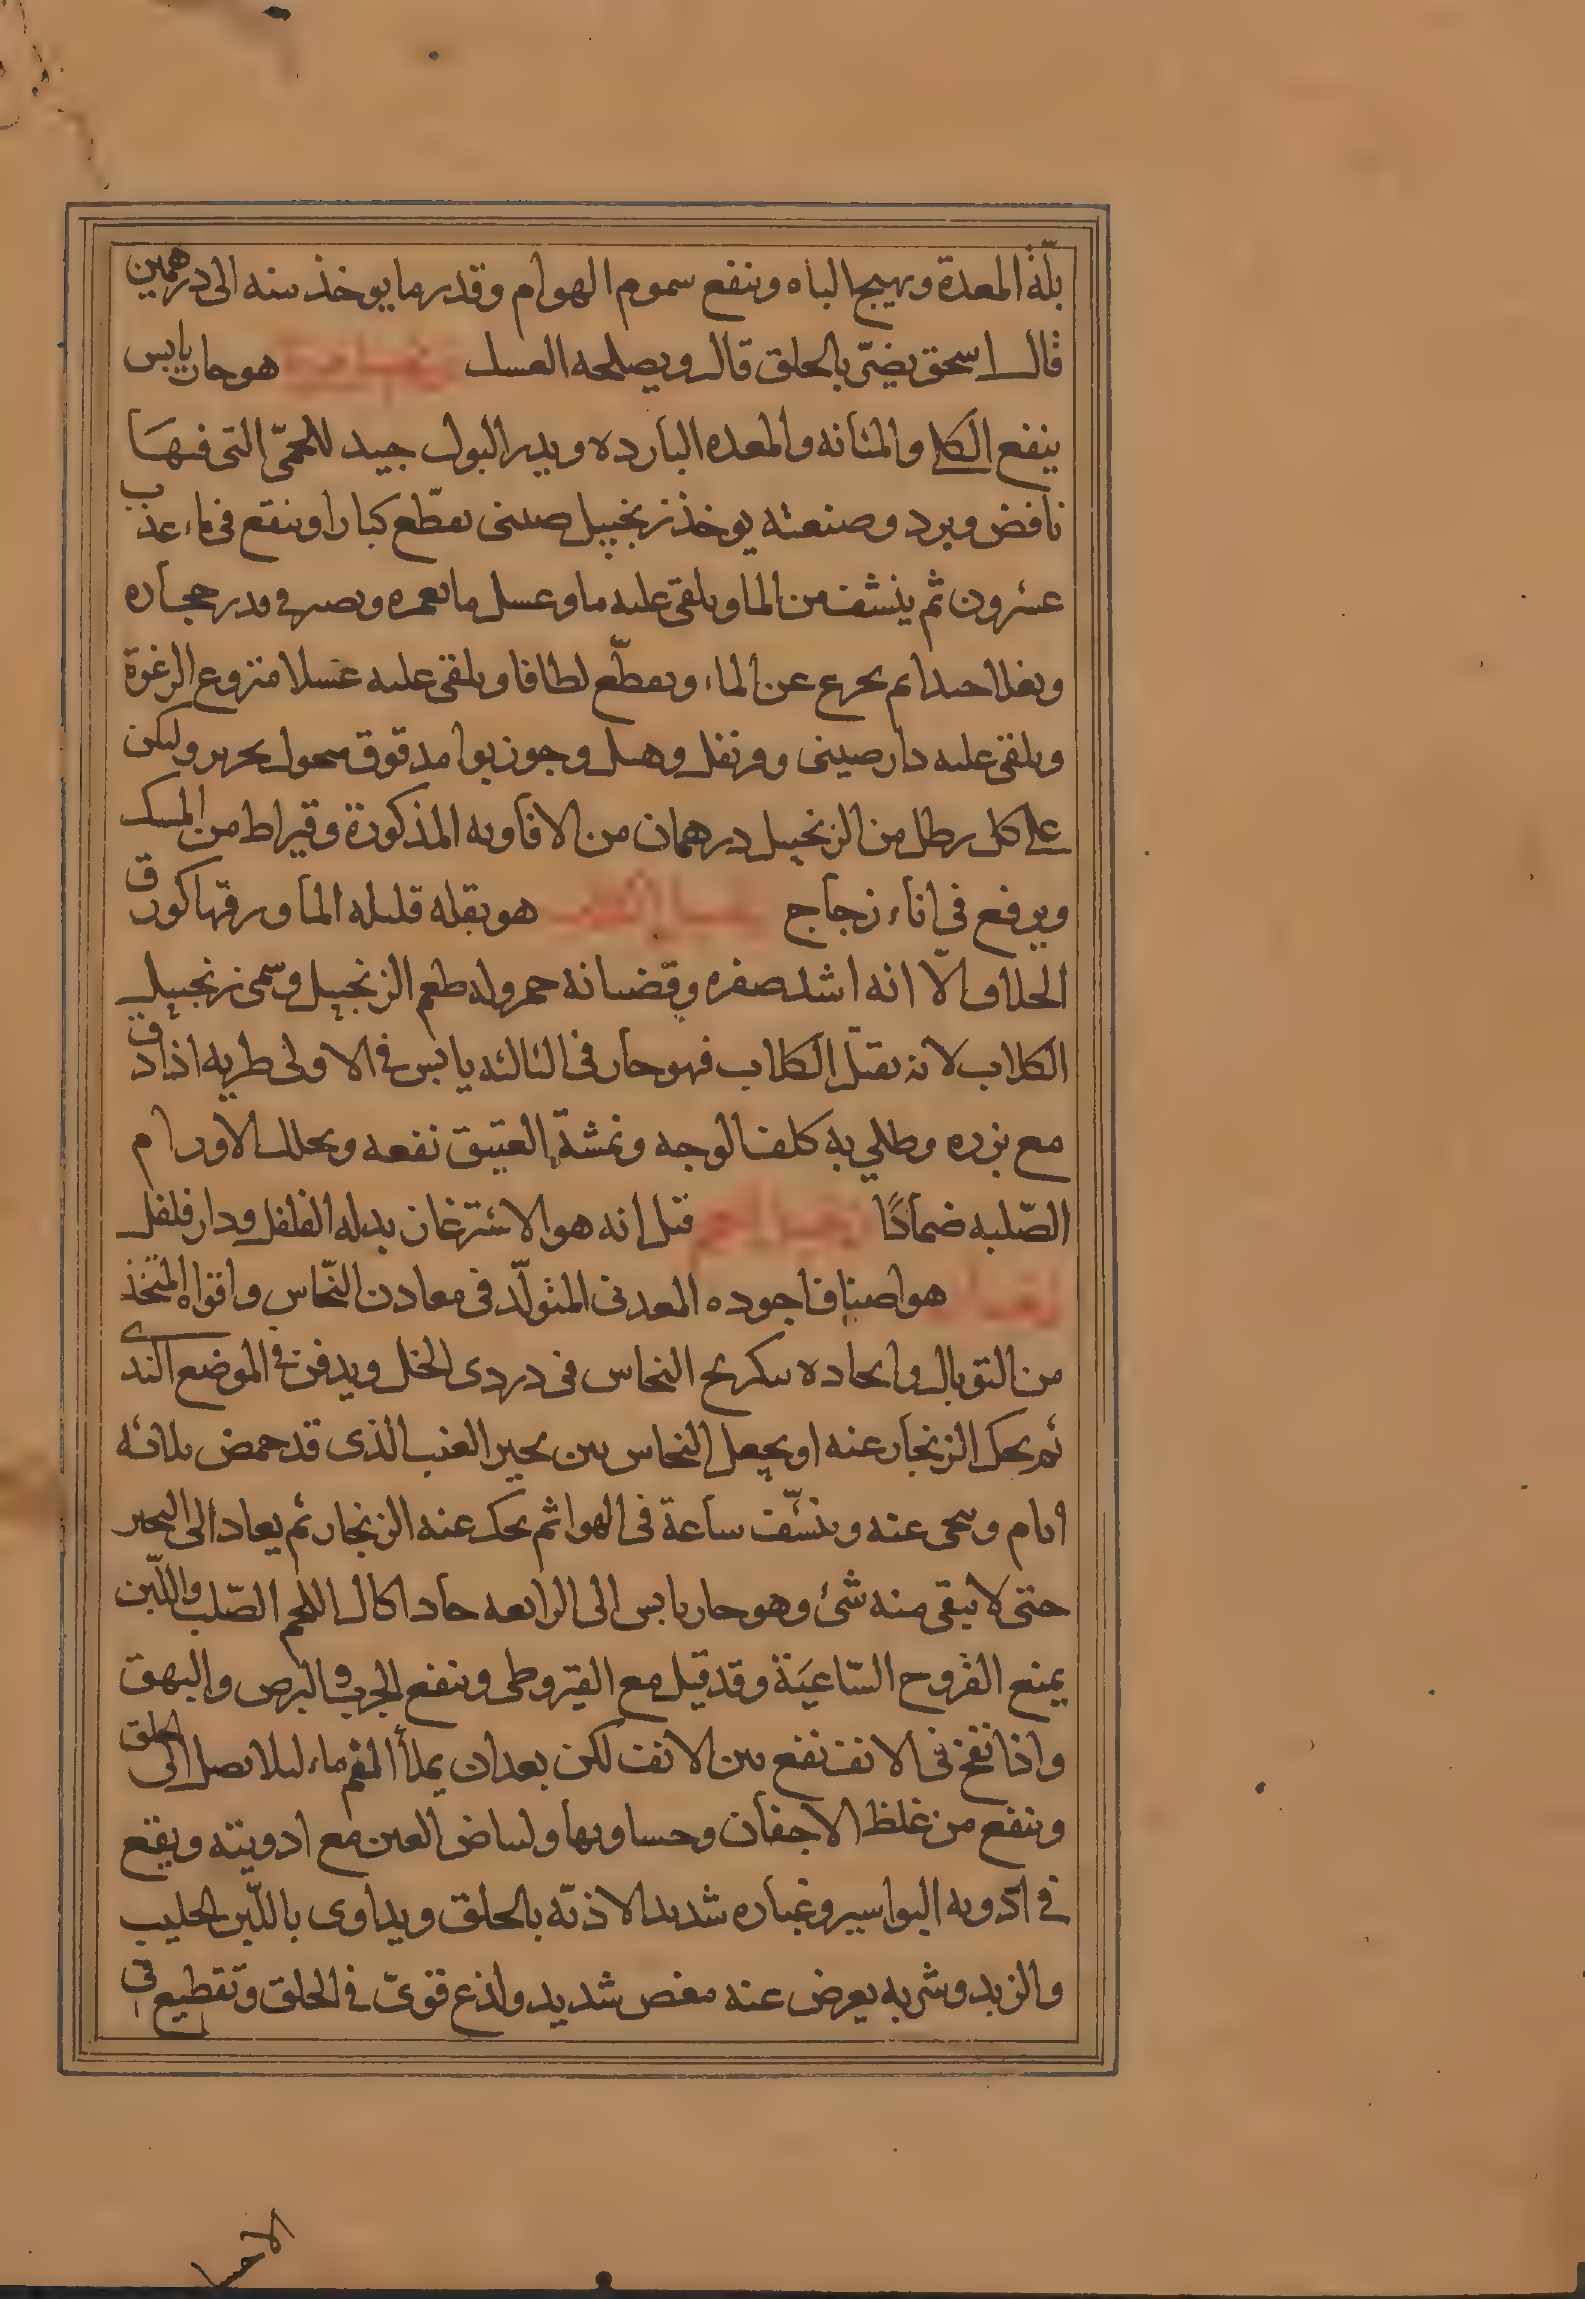 بلّة المعدة ويهيج الباه وينفع سموم الهوام وقدر ما يوخذ منه الى درهمين
قال اسحق يضرّ بالحلق قال ويصلحه العسل هو حار يابس
ينفع الكلى والمثانه والمعده البارده ويدر البول جيد للحمّى التى فيها
نافض وبرد وصنعته يوخذ زنجبيل صينى يقطّع كبارا وينقع فى ماء عذب
عشرون ثم ينشف من الما ويلقى عليه ما وعسل ما يغمره ويصير فى قدر حجاره
ويغلا جيدا ثم يخرج عن الماء ويقطّع لطافا ويلقى عليه عسلا منزوع الرغوة
ويلقى عليه دار صينى وقرنفل وهيل وجوزبوا مدقوق منخول بحرير وليكن
على كل رطل من الزنجبيل درهمان من الافاويه المذكورة وقيراط من المسك
ويرفع فى اناء زجاج زنجبيل الكلاب هو بقله قليله الما ورقها كورق
الخلاف الّا انه اشد صفره وقضبانه حمر وله طعم الزنجبيل وسمى زنجبيل
الكلاب لانه يقتل الكلاب فهو حار فى الثالثه يابس فى الاولى طريه اذا دق
مع بزره وطلي به كلف الوجه ونمشة العتيق نفعه ويحلل الاورام
الصّلبه ضمادًا زنجبيل العجم قيل انه هو الاشترغان بدله الفلفل ودار فلفل
زنجار هو اصناف اجوده المعدنى المتولّد فى معادن النّحاس واقواه المتخذ
من التوبال واتحاده بتكريج النحاس فى دردى الخل ويدفن فى الموضع الندى
ثم يحك الزنجار عنه او يجعل النحاس بين ثجير العنب الذى قد حمض ثلاثه
ايام وينحى عنه وينشّف ساعة فى الهوا ثم يحك عنه الزنجار ثم يعاد الى الثجير
حتى لا يبقى منه شئ وهو حار يابس الى الرابعه حاد اكال اللحم الصّلب واللّين
يمنع القروح السّاعيَة وقد قيل مع القيروطى وينفع الجرب والبرص والبهق
واذا نفخ فى الانف نفع نتن الانف لكن بعد ان يملأ الفم ماء ليلا يصل الى الحلق
وينفع من غلظ الاجفان وجساوتها ولبياض العين مع ادويته ويقع
فى ادويه البواسير وغباره شديد الاذيّه بالحلق ويداوى باللّبن الحليب
والزبد وشربه يعرض عنه مغص شديد ولذع قوىّ فى الحلق وتقطيع فى